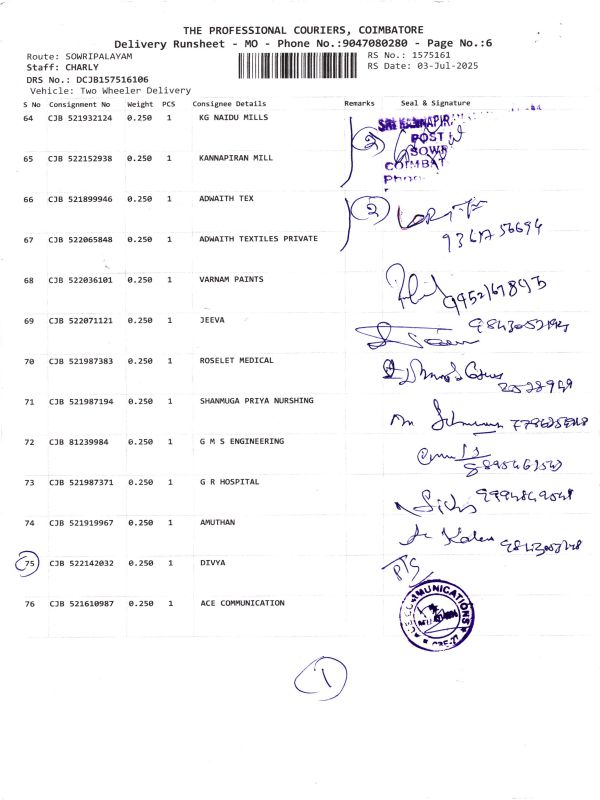 THE PROFESSIONAL COURIERS, COIMBATORE
Delivery Runsheet - MO - Phone No.:9047080280 - Page No.:6
Route: SOWRIPALAYAM RS No.: 1575161
Staff: CHARLY RS Date: 03-Jul-2025
DRS No.: DCJB157516106
Vehicle: Two Wheeler Delivery
S No Consignment No Weight PCS Consignee Details Remarks Seal & Signature
64 CJB 521932124 0.250 1 KG NAIDU MILLS
2
POST
SOWR
COIMBAT
Phon
65 CJB 522152938 0.250 1 KANNAPIRAN MILL
66 CJB 521899946 0.250 1 ADWAITH TEX 2
67 CJB 522065848 0.250 1 ADWAITH TEXTILES PRIVATE
68 CJB 522036101 0.250 1 VARNAM PAINTS
69 CJB 522071121 0.250 1 JEEVA
70 CJB 521987383 0.250 1 ROSELET MEDICAL
71 CJB 521987194 0.250 1 SHANMUGA PRIYA NURSHING
72 CJB 81239984 0.250 1 G M S ENGINEERING
73 CJB 521987371 0.250 1 G R HOSPITAL
74 CJB 521919967 0.250 1 AMUTHAN
75 CJB 522142032 0.250 1 DIVYA
76 CJB 521610987 0.250 1 ACE COMMUNICATION
1